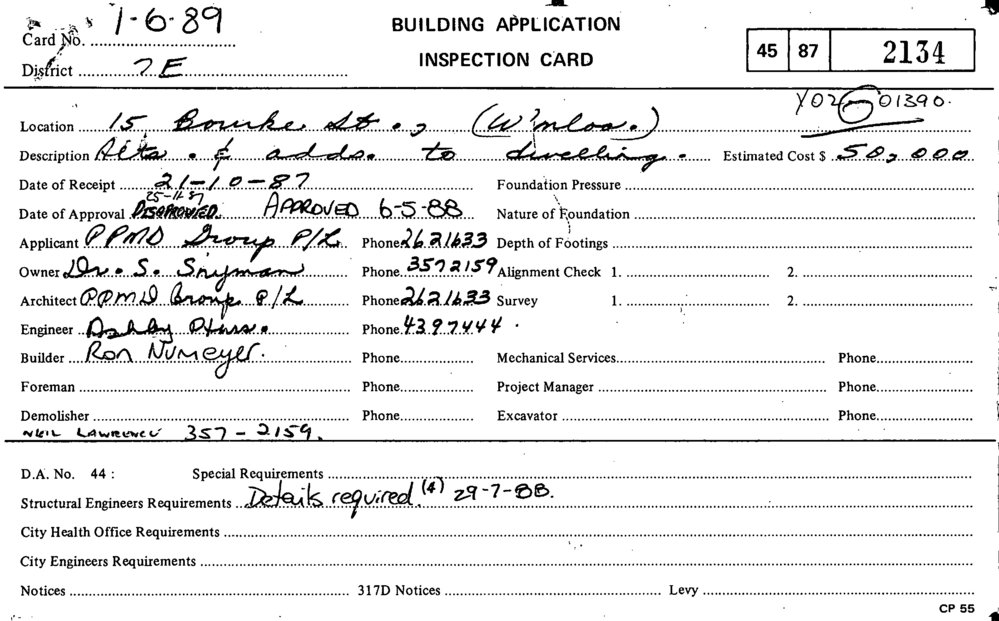 1-6-89 BUILDING APPLICATION
Card No.
INSPECTION CARD 45 87 2134
District 7E
Y02 01390.
Location 15, Bourke St., (W'mloo.)
Description Alts. & adds. to dwelling. Estimated Cost $ 50,000
Date of Receipt 21-10-87 Foundation Pressure
25-11-87
Date of Approval DISAPPROVED. APPROVED 6-5-88 Nature of Foundation
Applicant PPMD Group P/L Phone 2621633 Depth of Footings
Owner Dr. S. Snyman Phone 3572159 Alignment Check 1. 2.
Architect PPMD Group P/L Phone 2621633 Survey 1. 2.
Engineer Phone 4397444
Builder Ron Numeyer. Phone Mechanical Services Phone
Foreman Phone Project Manager Phone
Demolisher Phone Excavator Phone
NEIL LAWRENCE 357-2159.
D.A. No. 44: Special Requirements
Structural Engineers Requirements Details required. (4) 29-7-88.
City Health Office Requirements
City Engineers Requirements
Notices 317D Notices Levy
CP 55